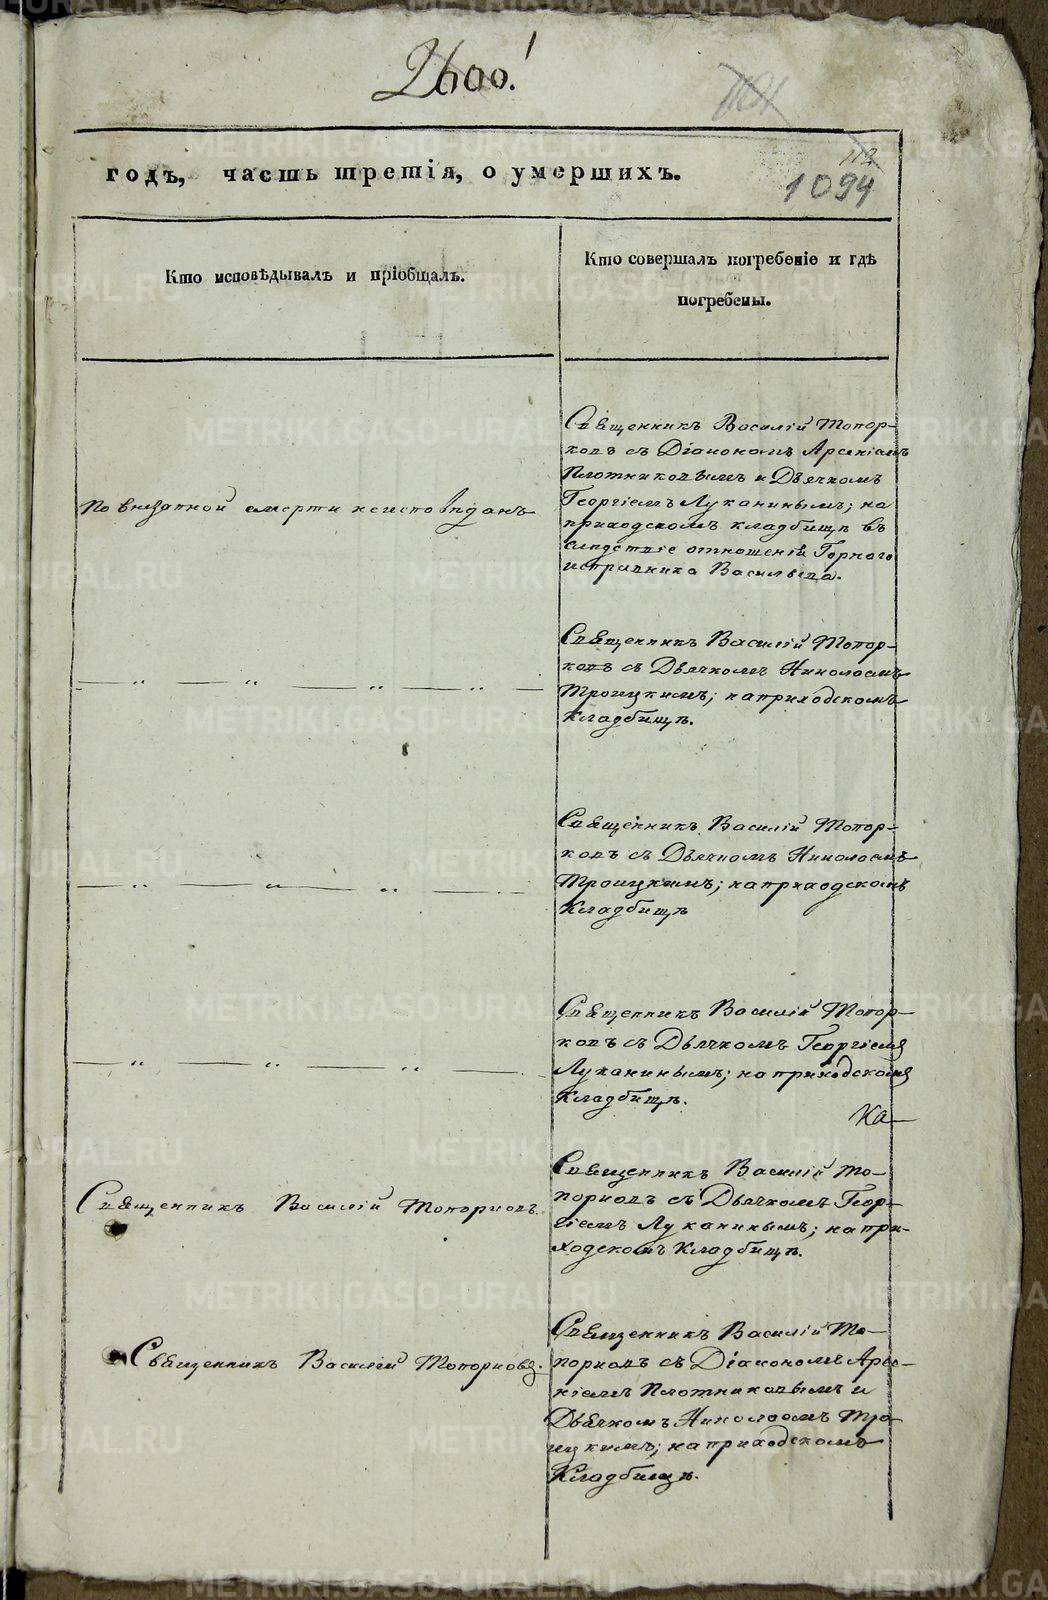 2600.
1094
годъ, часть третія, о умершихъ.
Кто исповѣдывалъ и пріобщалъ.
Кто совершалъ погребеніе и гдѣ
погребены.
По внезапной смерти неисповѣданъ
Священникъ Василій Топор-
ковъ съ Діакономъ Арсеніемъ
Плотниковымъ и Дьячкомъ
Георгіемъ Луканинымъ; на
приходскомъ кладбищѣ въ
слѣдствіе отношенія Горнаго
исправника Васильева.
— „ — „ — „ — „ —
Священникъ Василій Топор-
ковъ съ Дьячкомъ Николаемъ
Троицкимъ; на приходскомъ
кладбищѣ.
— „ — „ — „ —
Священникъ Василій Топор-
ковъ съ Дьячкомъ Николаемъ
Троицкимъ; на приходскомъ
кладбищѣ
— „ — „ — „ —
Священникъ Василій Топор-
ковъ съ Дьячкомъ Георгіемъ
Луканинымъ; на приходскомъ
кладбищѣ.
Ка-
Священникъ Василій Топорковъ.
Священникъ Василій То-
порковъ съ Дьячкомъ Геор-
гіемъ Луканинымъ; на при-
ходскомъ кладбищѣ.
Священникъ Василій Топорковъ.
Священникъ Василій То-
порковъ съ Діакономъ Арсе-
ніемъ Плотниковымъ и
Дьячкомъ Николаемъ Тро-
ицкимъ; на приходскомъ
кладбищѣ.
METRIKI.GASO-URAL.RU